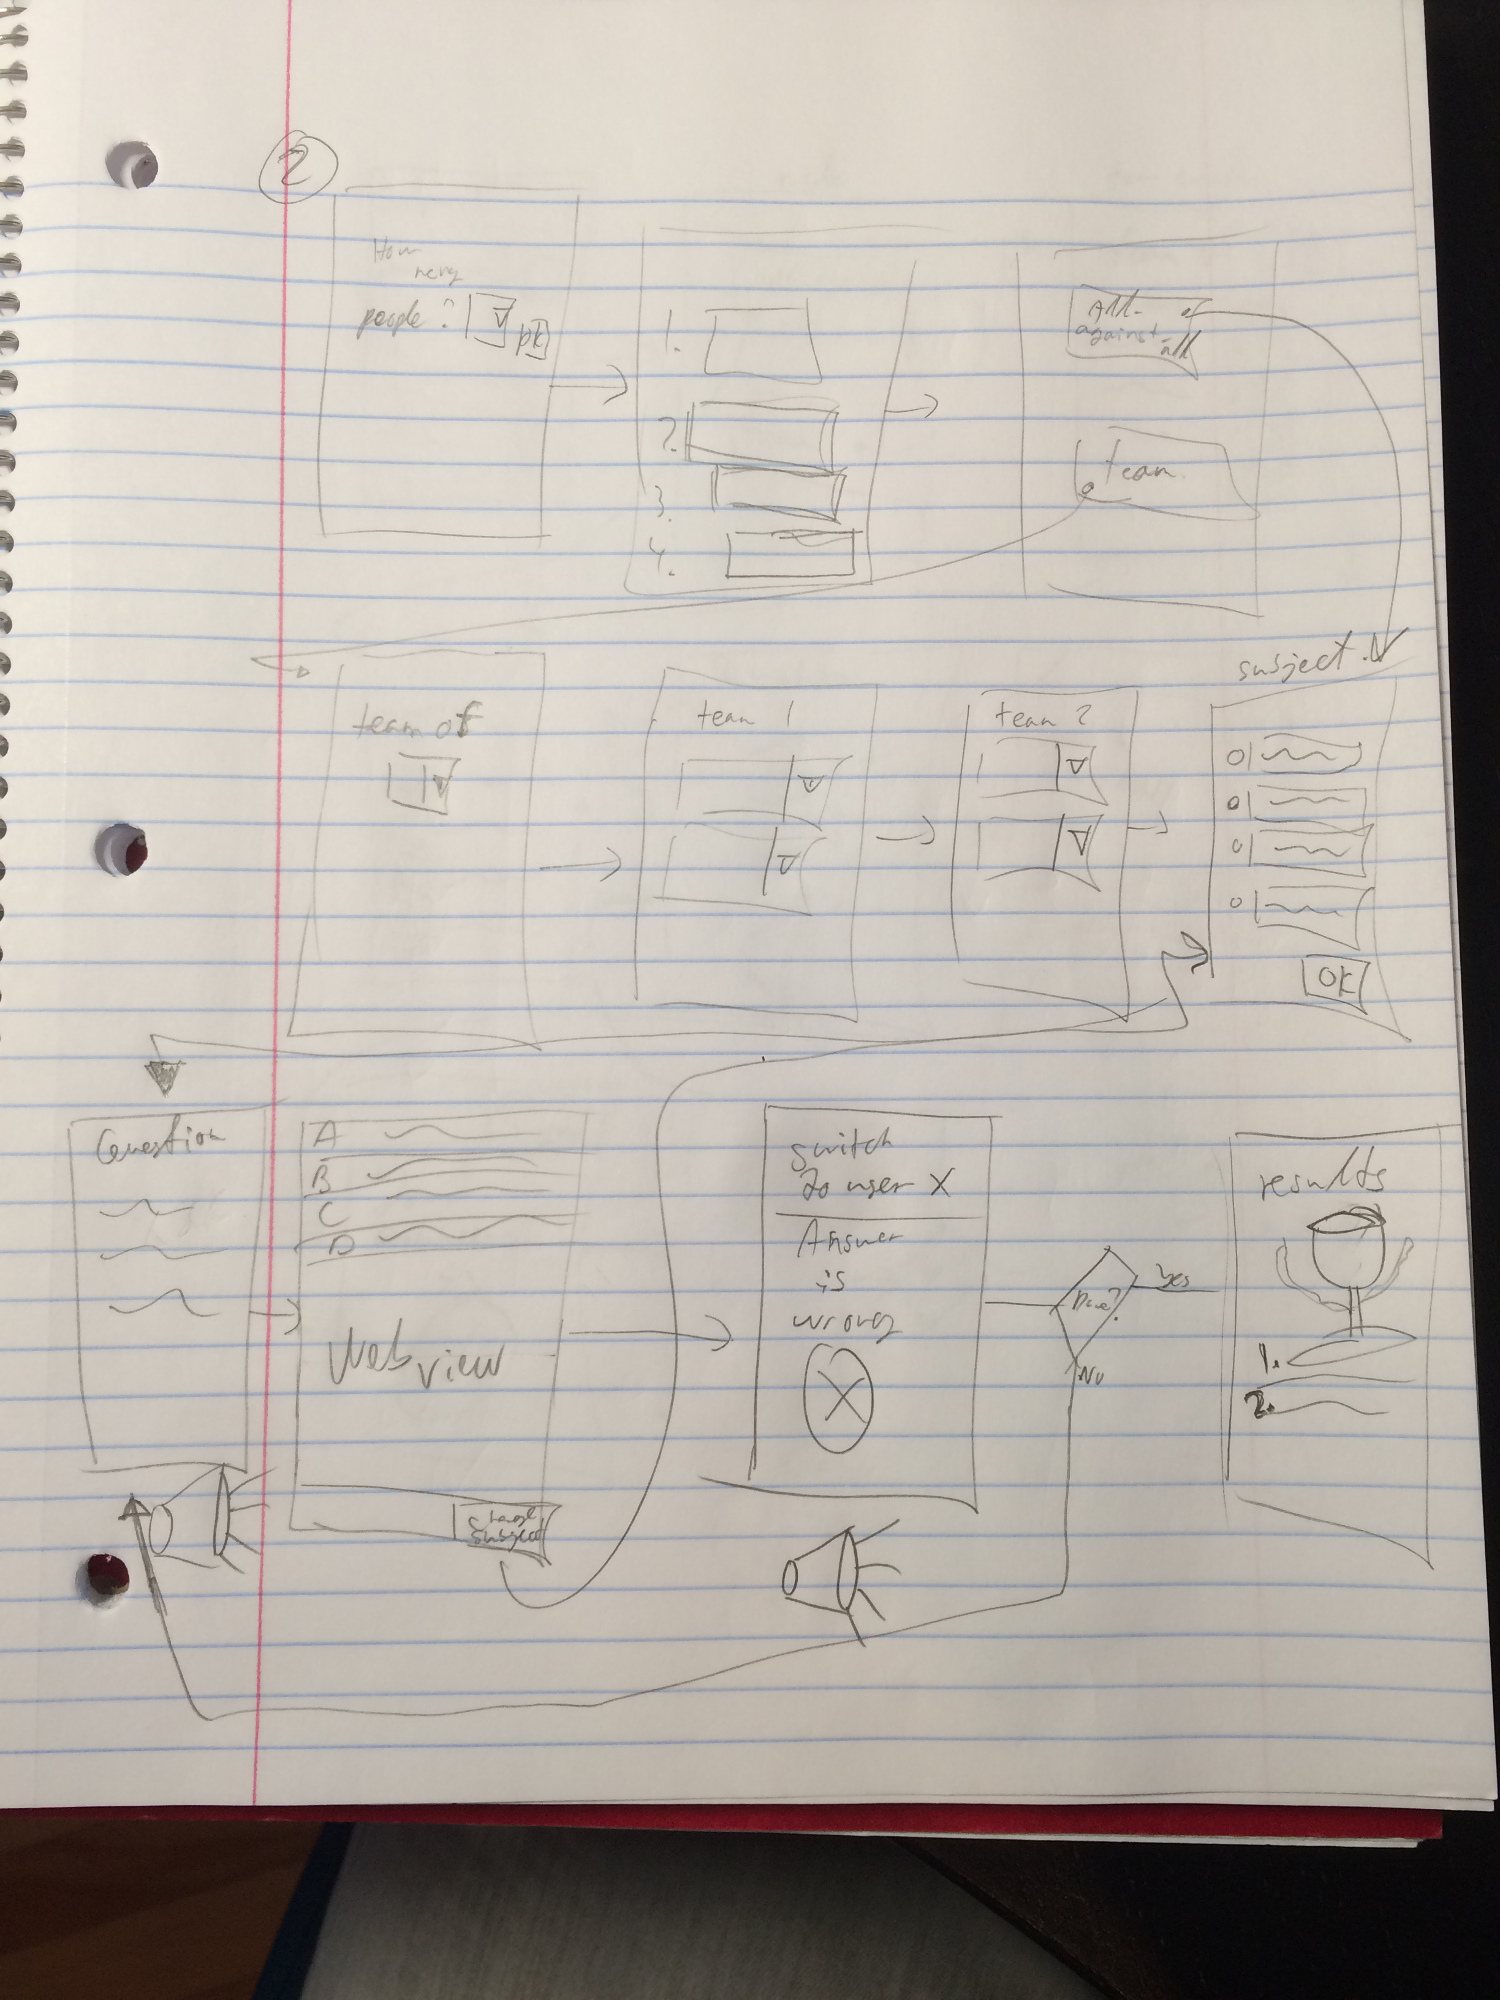 2
How
many
people?
ok
1.
2.
3.
4.
All-
against-
all
team
team of
team 1
team 2
subject
OK
Question
A
B
C
D
Web view
change
subject
switch
to user X
Answer
is
wrong
X
Done?
Yes
No
results
1.
2.